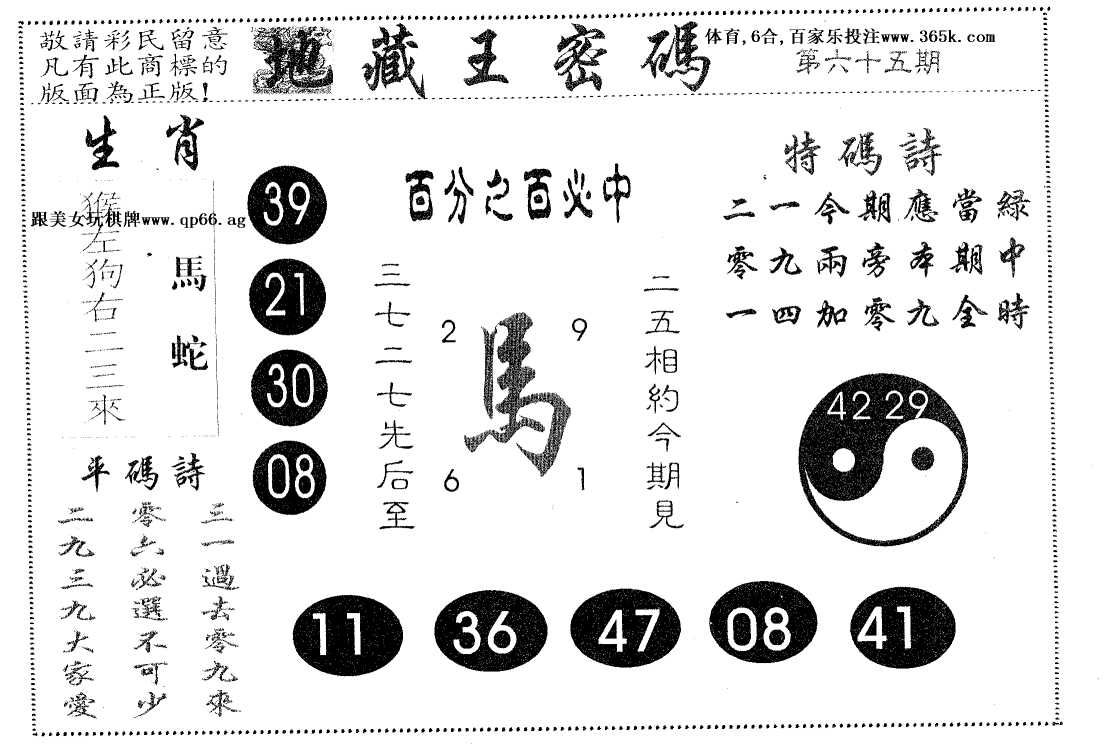 敬請彩民留意
凡有此商標的
版面為正版!
地藏王密碼
体育,6合,百家乐投注www.365k.com
第六十五期
生肖
猴左狗右二三來
馬蛇
跟美女玩棋牌www.qp66.ag
39
21
30
08
百分之百必中
三七二七先后至
2
9
馬
6
1
二五相約今期見
特碼詩
二一今期應當綠
零九兩旁本期中
一四加零九全時
42 29
平碼詩
三一過去零九來
零六必選不可少
二九三九大家愛
11
36
47
08
41